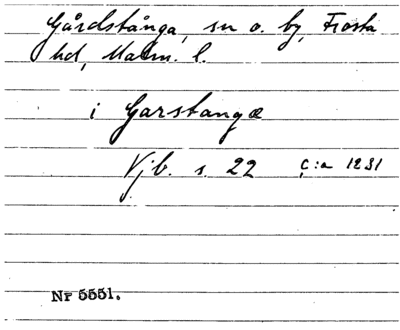 Gårdstånga, sn o. by, Frosta
hd, Malm. l.
i Garstangæ
Vjb. s. 22 C:a 1231
Nr 5551.